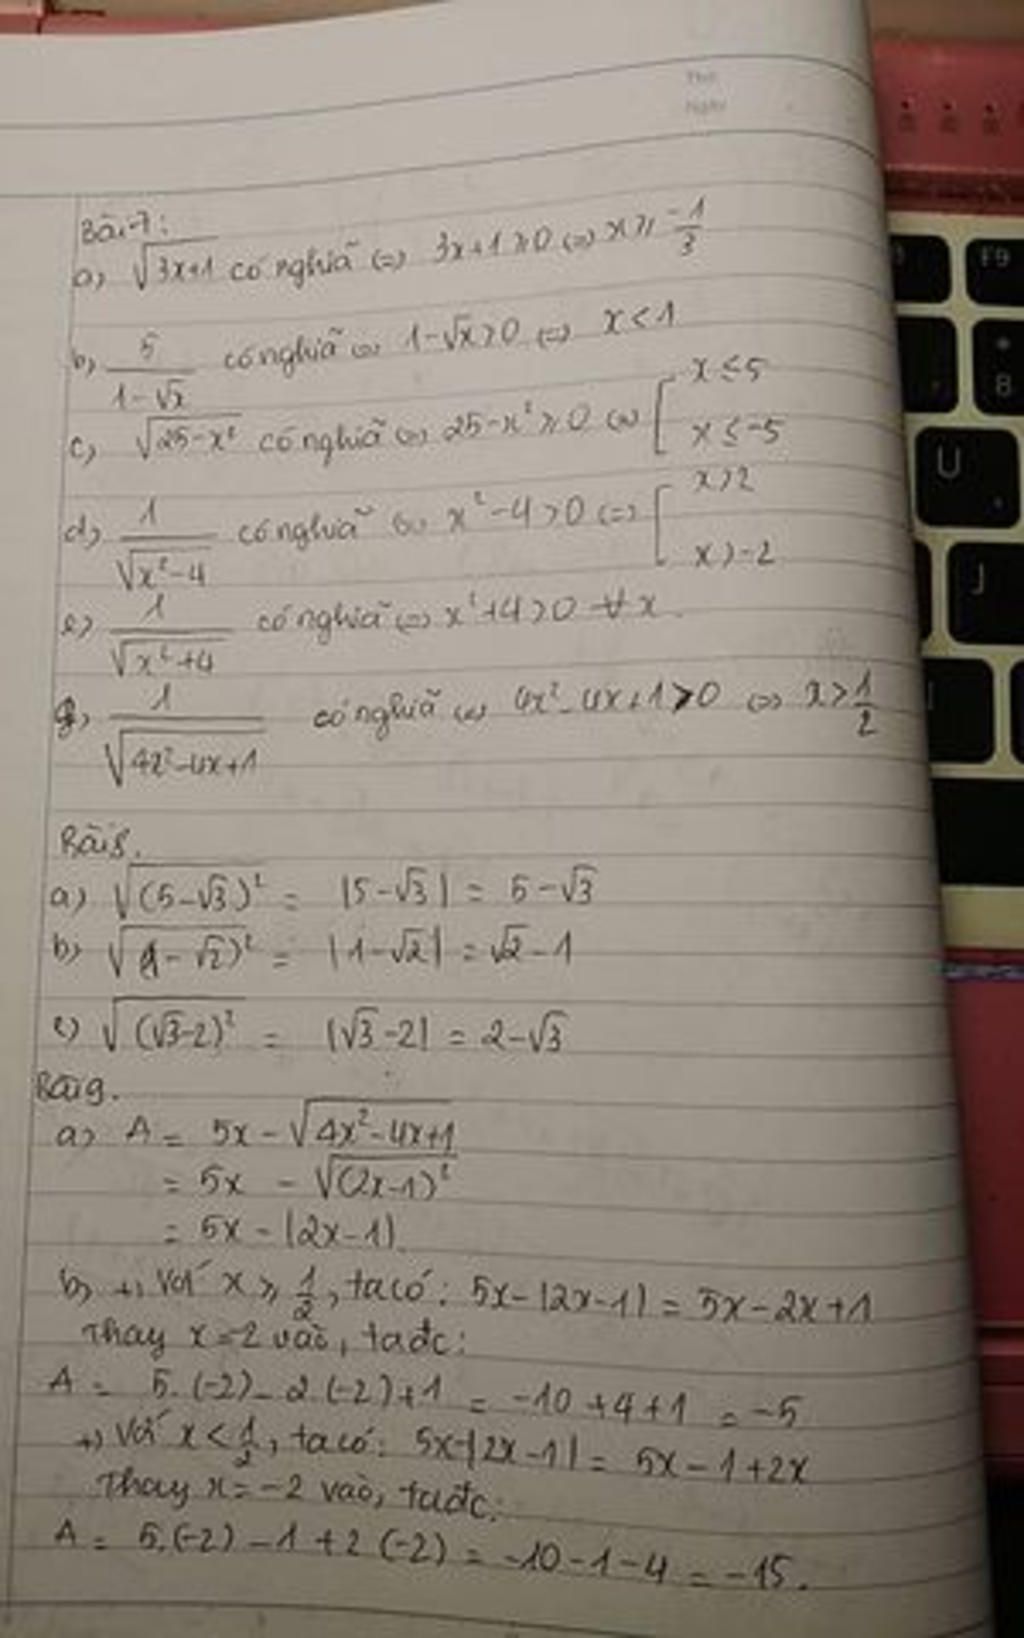 Thứ
Ngày
F9
8
U
J
Bài 7:
a) √(3x+1) có nghĩa (=) 3x+1 ≥ 0 (=) x ≥ -1/3
b) 5/(1-√x) có nghĩa (=) 1-√x > 0 (=) x < 1
c) √(25-x²) có nghĩa (=) 25-x² ≥ 0 (=) [ x ≤ 5
x ≤ -5
d) 1/√(x²-4) có nghĩa (=) x²-4 > 0 (=) [ x > 2
x > -2
e) 1/√(x²+4) có nghĩa (=) x²+4 > 0 ∀ x.
g) 1/√(4x²-4x+1) có nghĩa (=) 4x²-4x+1 > 0 (=) x > 1/2
Bài 8.
a) √(5-√3)² = |5-√3| = 5-√3
b) √(1-√2)² = |1-√2| = √2-1
c) √(√3-2)² = |√3-2| = 2-√3
Bài 9.
a) A = 5x - √(4x²-4x+1)
= 5x - √(2x-1)²
= 5x - |2x-1|.
b) +) Với x ≥ 1/2, ta có: 5x-|2x-1| = 5x-2x+1
Thay x=-2 vào, ta đc:
A = 5.(-2)-2.(-2)+1 = -10+4+1 = -5
+) Với x < 1/2, ta có: 5x-|2x-1| = 5x-1+2x
Thay x=-2 vào, ta đc:
A = 5.(-2)-1+2(-2) = -10-1-4 = -15.